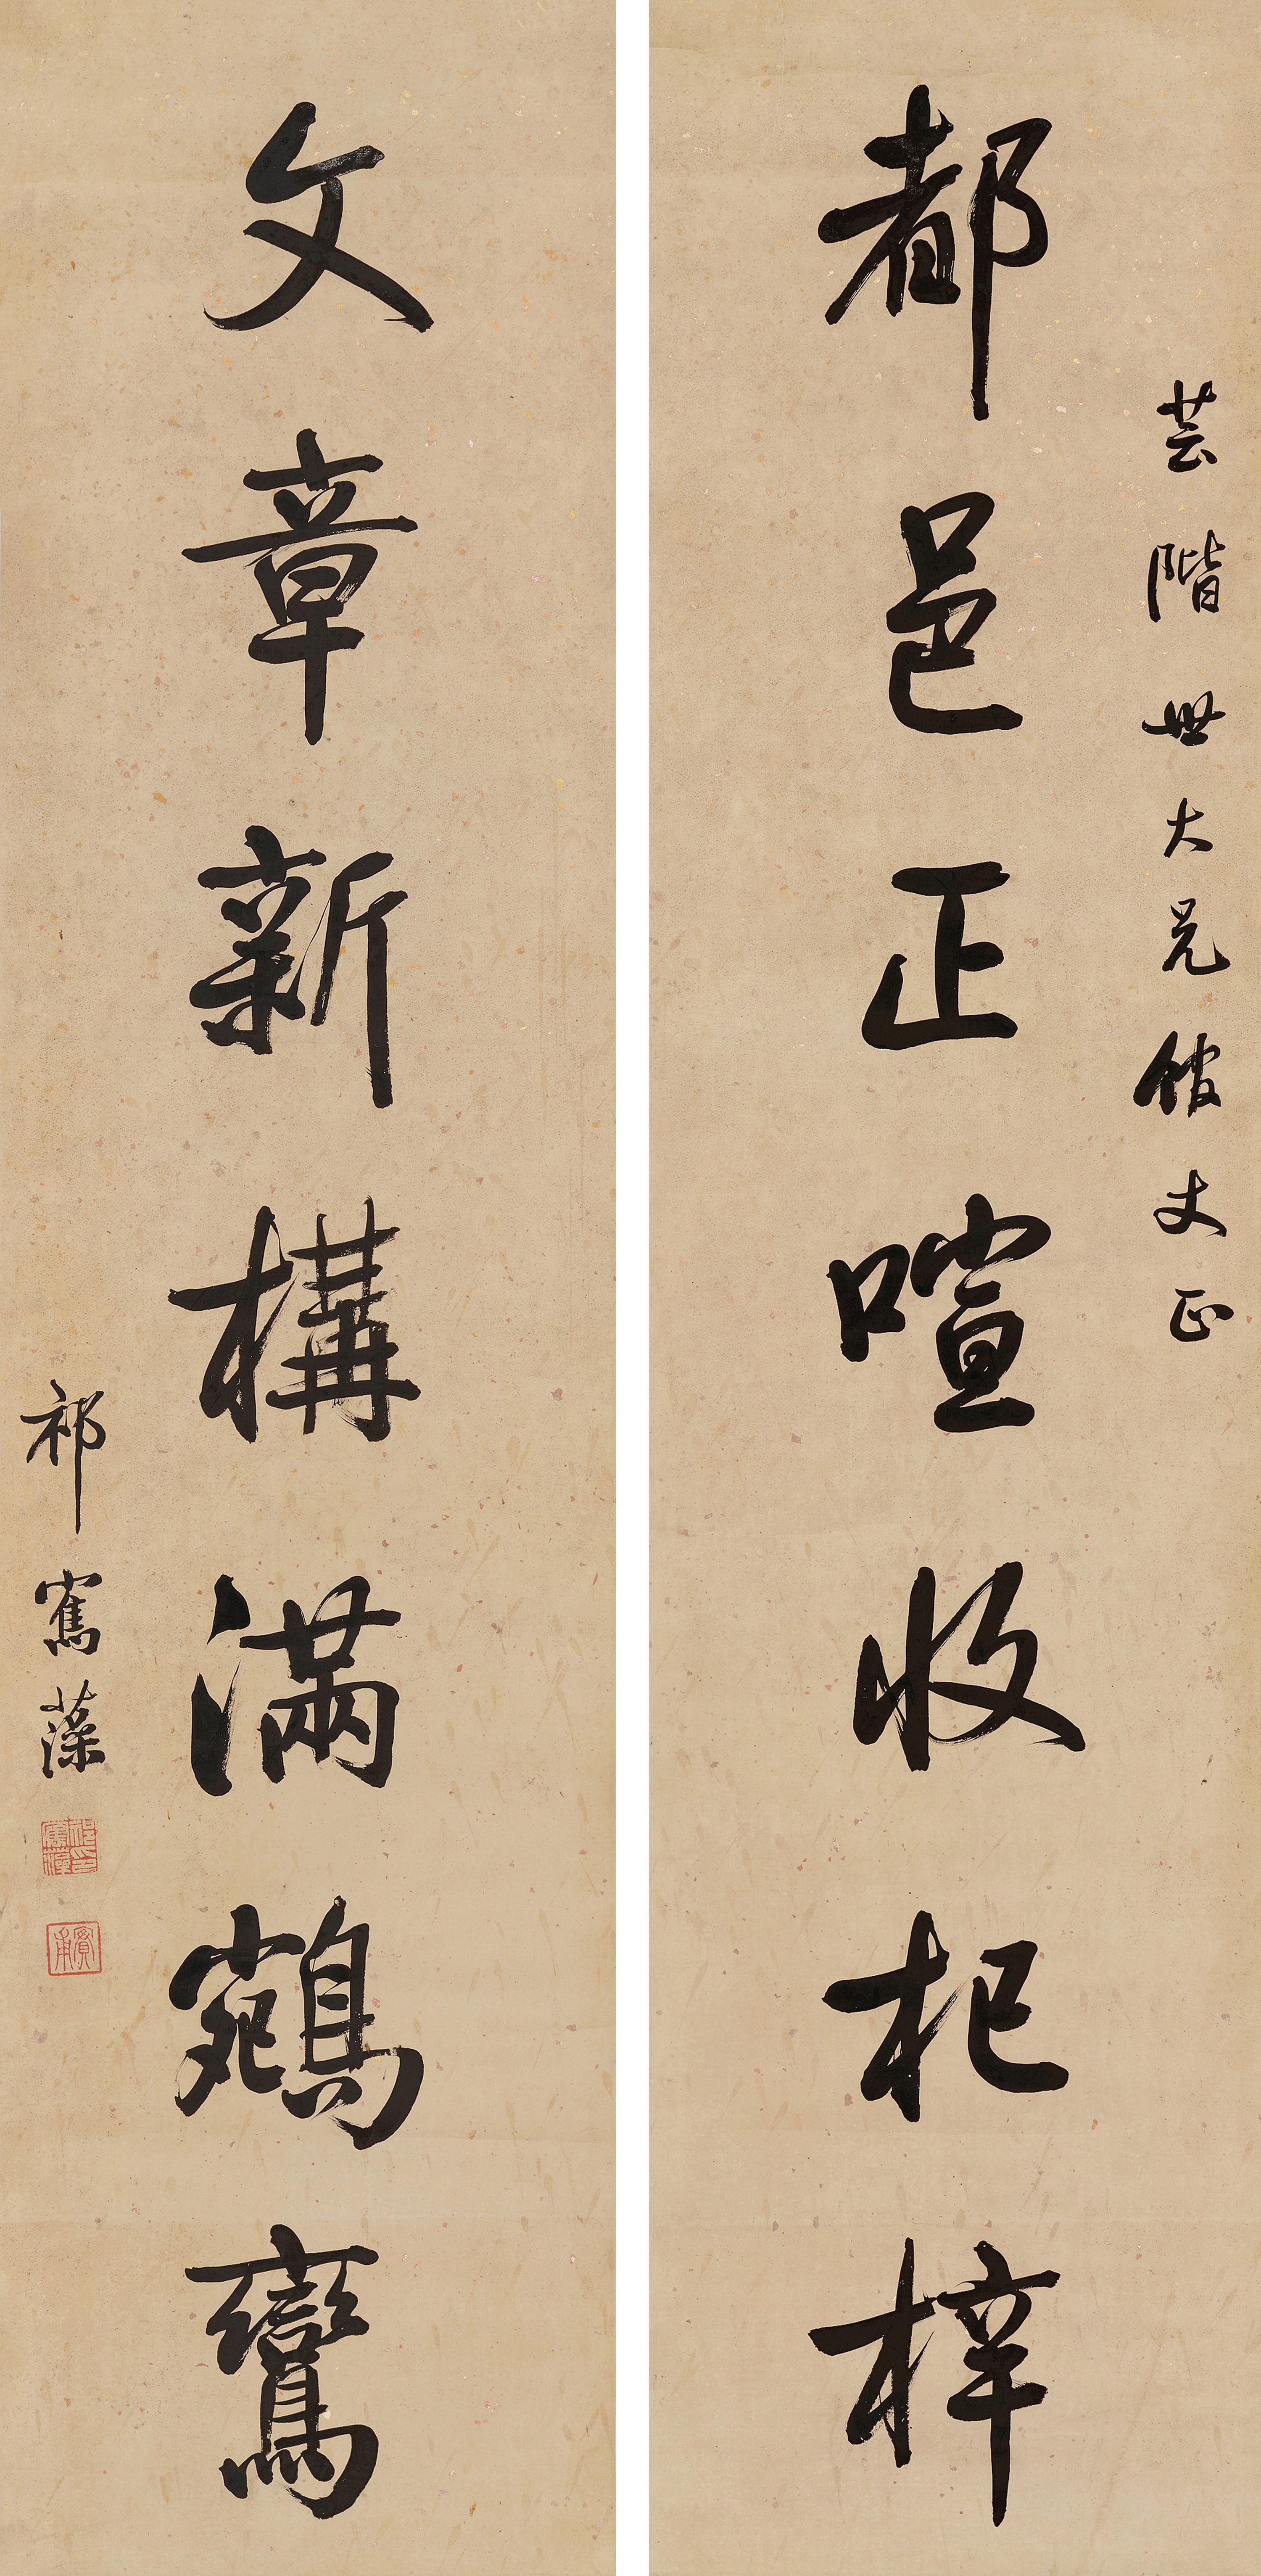 芸階世大兄館丈正
都邑正喧收杞梓
文章新構滿鵷鸞
祁寯藻
祁寯藻印
實甫